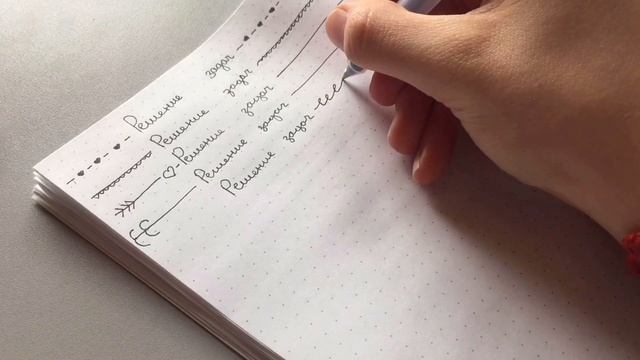 Решение задач
Решение задач
Решение задач
Решение задач
Решение задач